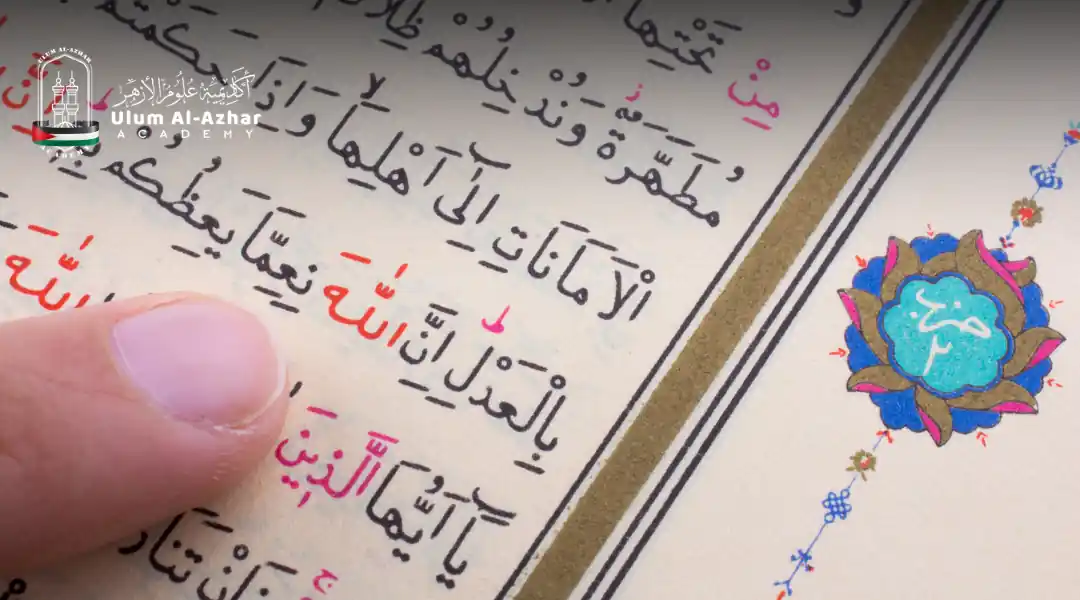 ULUM AL-AZHAR
ACADEMY
أكاديمية علوم الأزهر
Ulum Al-Azhar
ACADEMY
مِنْ تَحْتِهَا
مُطَهَّرَةٌ وَنُدْخِلُهُمْ
الْاَمَانَاتِ اِلٰٓى اَهْلِهَا وَاِذَا حَكَمْتُمْ
بِالْعَدْلِ اِنَّ اللّٰهَ نِعِمَّا يَعِظُكُمْ
يَٓا اَيُّهَا الَّذِينَ
حزب
٢